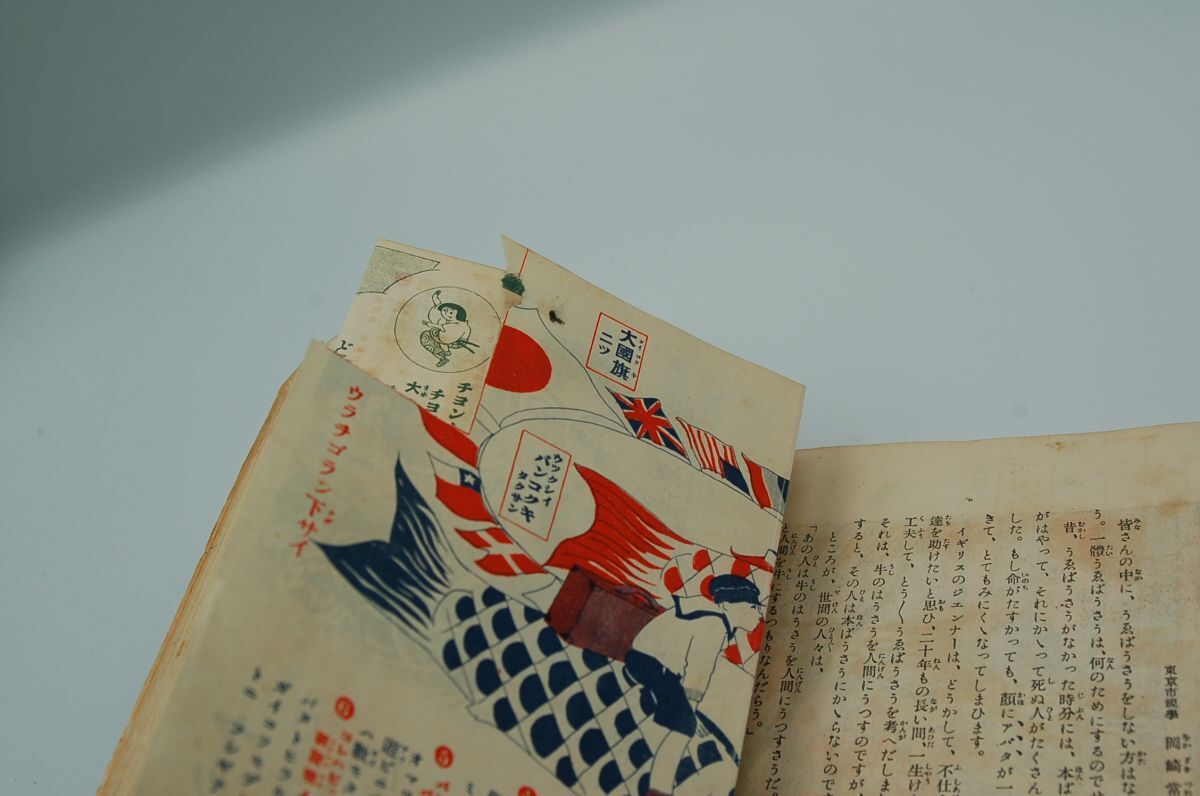 大國旗
二ツ
ウツクシイ
バンコクキ
タクサン
チヨン、
チヨ
大
ど
ウラヲゴランド下サイ
東京市視學　岡崎常
皆さんの中に、うゑばうさうをしない方はな
う。一體うゑばうさうは、何のためにするのでせ
昔、うゑばうさうがなかつた時分には、本ば
がはやつて、それにかゝつて死ぬ人がたくさん
した。もし命がたすかつても、顔にアバタが一
きて、とてもみにくゝなつてしまひます。
イギリスのジエンナーは、どうかして、不仕
達を助けたいと思ひ、二十年もの長い間、一生け
工夫して、とう〳〵うゑばうさうを考へだしま
それは、牛のはうさうを人間にうつすのですが、
すると、その人は本ばうさうにかゝらないので
ところが、世間の人々は、
「あの人は牛のはうさうを人間にうつすさうだ。
と人間を牛にするつもりなんだらう。」